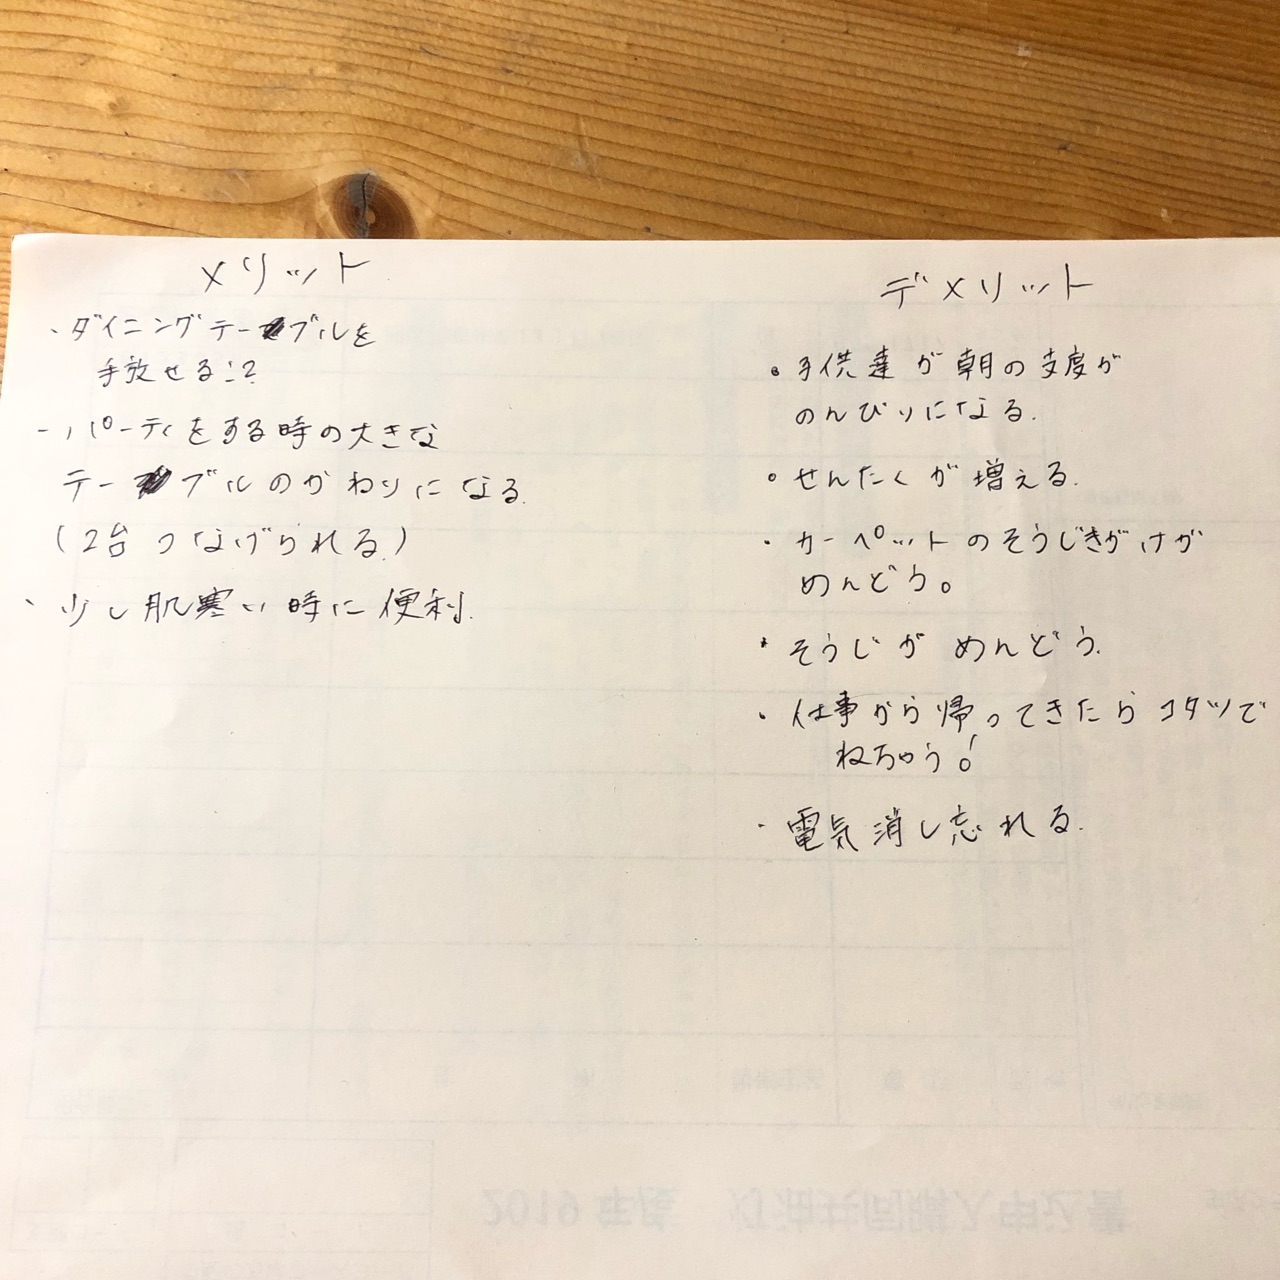 メリット
・ダイニングテーブルを
手放せる!?
・パーティをする時の大きな
テーブルのかわりになる
(2台つなげられる)
・少し肌寒い時に便利.
デメリット
・子供達が朝の支度が
のんびりになる.
・せんたくが増える.
・カーペットのそうじきがけが
めんどう。
・そうじがめんどう.
・仕事から帰ってきたらコタツで
ねちゃう!
・電気消し忘れる.
2019年度 灯油共同購入申込書